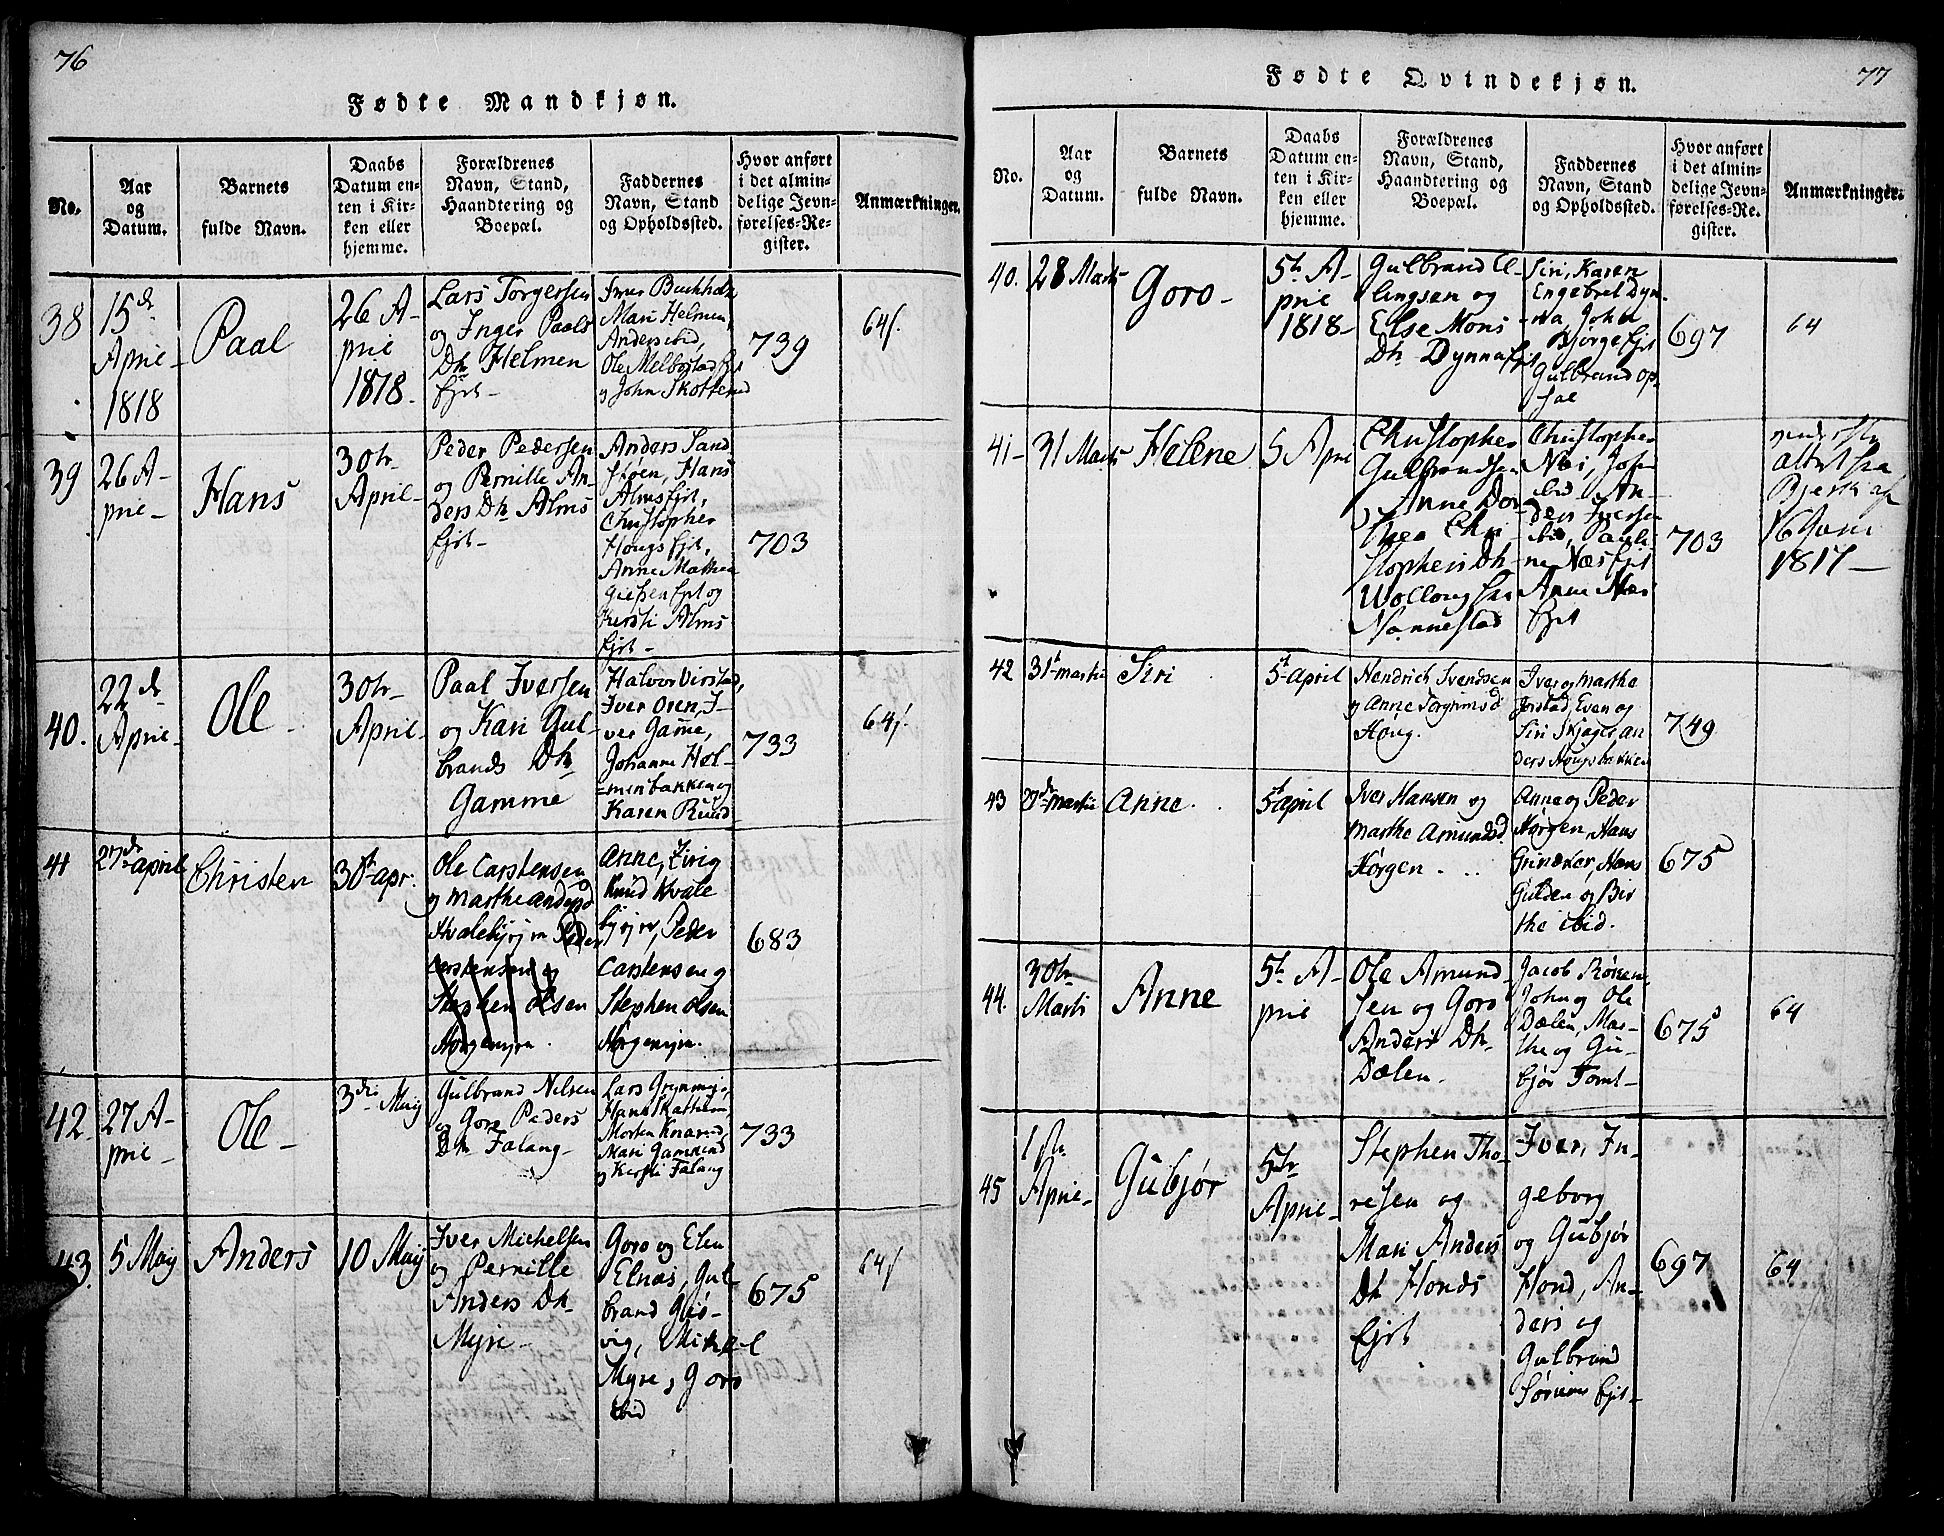 76
Fødte Mandkjøn.
No.
Aar
og
Datum.
Barnets
fulde Navn.
Daabs
Datum en-
ten i Kir-
ken eller
hjemme.
Forældrenes
Navn, Stand,
Haandtering og
Boepæl.
Faddernes
Navn, Stand
og Opholdssted.
Hvor anført
i det almin-
delige Jevn-
førelses-Re-
gister.
Anmærkninger.
38
15de
Aprie
1818
Paal
26 A-
prie
1818.
Lars Torgersen
og Inger Paals
Dtr Helmen
Ejet
Buckholt
Mari Helmen,
Anders ibid,
Ole Melbostad Ejet
og John Skotten
739
64/.
39
26 A-
prie
Hans
30te
April
Peder Pedersen
og Pernille An-
ders Dtr Alms
Ejet
Anders Sand-
støen, Hans
Alms Ejet,
Christopher
Hougs Ejet,
Anne Mathea
Ejet og
Kersti Alms
Ejet
703
40.
22de
Aprie
Ole
30te
April
Paal Iversen
og Kari Gul-
brands Dtr
Gamme
Halvor Virstad,
Iver Oren, I-
ver Gamme,
Johanne Hol-
menbakken og
Karen Ruud
733
64/.
41
27de april
Christen
30te apr.
Ole Carstensen
og Marthe Andersd
Hvalebyejer Peder
Carstensen og
Stephen Olsen
Horgenejer.
Anne, Siri og
Knud Kvale
byejer, Peder
Carstensen og
Stephen Olsen
Horgenejer.
683
42.
27 A-
prie
Ole
3die Maij
Gulbrand Nilsen
og Goro Peders
Dtr Falang
Lars Grynmyr,
Hans
Morten Knarud,
Mari Gamkind
og Kersti Falang
733
43.
5 Maij
Anders
10 Maij
Iver Michelsen
og Pernille
Anders Dtr
Myre
Goro og Elen
Elnæs, Gul-
brand Gis-
vig, Mikkel
Myre, Goro
ibid
675
64/.
77
Fødte Qvindekjøn.
No.
Aar
og
Datum.
Barnets
fulde Navn.
Daabs
Datum en-
ten i Kir-
ken eller
hjemme.
Forældrenes
Navn, Stand,
Haandtering og
Boepæl.
Faddernes
Navn, Stand
og Opholdssted.
Hvor anført
i det almin-
delige Jevn-
førelses-Re-
gister.
Anmærkninger.
40.
28 Marti
Goro
5te A-
prie
1818
Gulbrand El-
lingsen og
Else Mons
Dtr Dynna Ejet
Siri, Karen
Engebret Dyn-
na, John
Bjørge Ejet
Gulbrand Op-
sae
697
64
41
31 Marti
Helene
5 Apri
Christopher
Gulbrandsen
og Anne Doro-
thea Chri-
stophers Dtr
fra
Nannestad
Christopher
Næs, Joh
ibid, An-
ders Iversen
ibid, Pauli-
ne Næs Ejet
Anne Næs
Ejet
703
attest fra
Bjerk af
16 Juni
1817
42
31te martii
Siri
5te april
Hendrich Svendsen
og Anne Torgrimsd
Houg.
Iver og Marthe
Jorstad, Even og
Siri Skjager, An
ders Hougsbakken
749
43
27de martii
Anne.
5te april
Iver Hansen og
Marthe Amundsd.
Horgen.
Anne og Peder
Horgen, Hans
Grinaker, Hans
Gulden og Ber
the ibid.
675
44.
30te
Marti
Anne
5te A-
prie
Ole Amund-
sen og Goro
Anders Dtr
Dælen.
Jacob Røken,
John og Ole
Dælen, Mar-
the og Gu-
bjør Tomt-
675
64
45
1ste
Aprie
Gubjør
5te
Aprie
Stephen Tho-
resen og
Mari Anders
Dtr Honds
Ejet
Iver, In-
geborg
og Gubjør
Hond, An-
ders og
Gulbrand
Ejet
697
64